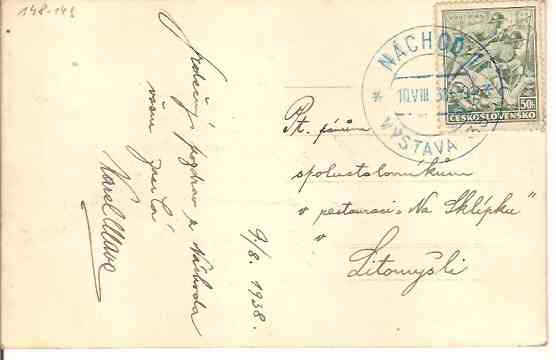 148-149
Srdečný pozdrav z Náchoda
všem
Karel
9/8. 1938.
NÁCHOD
10.VIII.38
VÝSTAVA
50h
ČESKOSLOVENSKO
Pt. pánům
spolustolovníkům
v restauraci „Na Sklípku"
v
Litomyšli